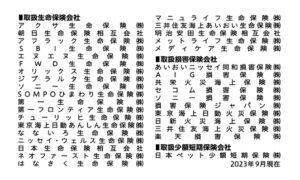 ■取扱生命保険会社
アクサ生命保険㈱
朝日生命保険相互会社
アフラック生命保険㈱
SBI生命保険㈱
エヌエヌ生命保険㈱
FWD生命保険㈱
オリックス生命保険㈱
ジブラルタ生命保険㈱
ソニー生命保険㈱
SOMPOひまわり生命保険㈱
第一生命保険㈱
第一フロンティア生命保険㈱
チューリッヒ生命保険㈱
東京海上日動あんしん生命保険㈱
なないろ生命保険㈱
ニッセイ・ウェルス生命保険㈱
日本生命保険相互会社
ネオファースト生命保険㈱
はなさく生命保険㈱
マニュライフ生命保険㈱
三井住友海上あいおい生命保険㈱
明治安田生命保険相互会社
メットライフ生命保険㈱
メディケア生命保険㈱
■取扱損害保険会社
あいおいニッセイ同和損害保険㈱
AIG損害保険㈱
共栄火災海上保険㈱
セコム損害保険㈱
ソニー損害保険㈱
損害保険ジャパン㈱
東京海上日動火災保険㈱
日新火災海上保険㈱
三井住友海上火災保険㈱
楽天損害保険㈱
■取扱少額短期保険会社
日本ペット少額短期保険㈱
2023年9月現在